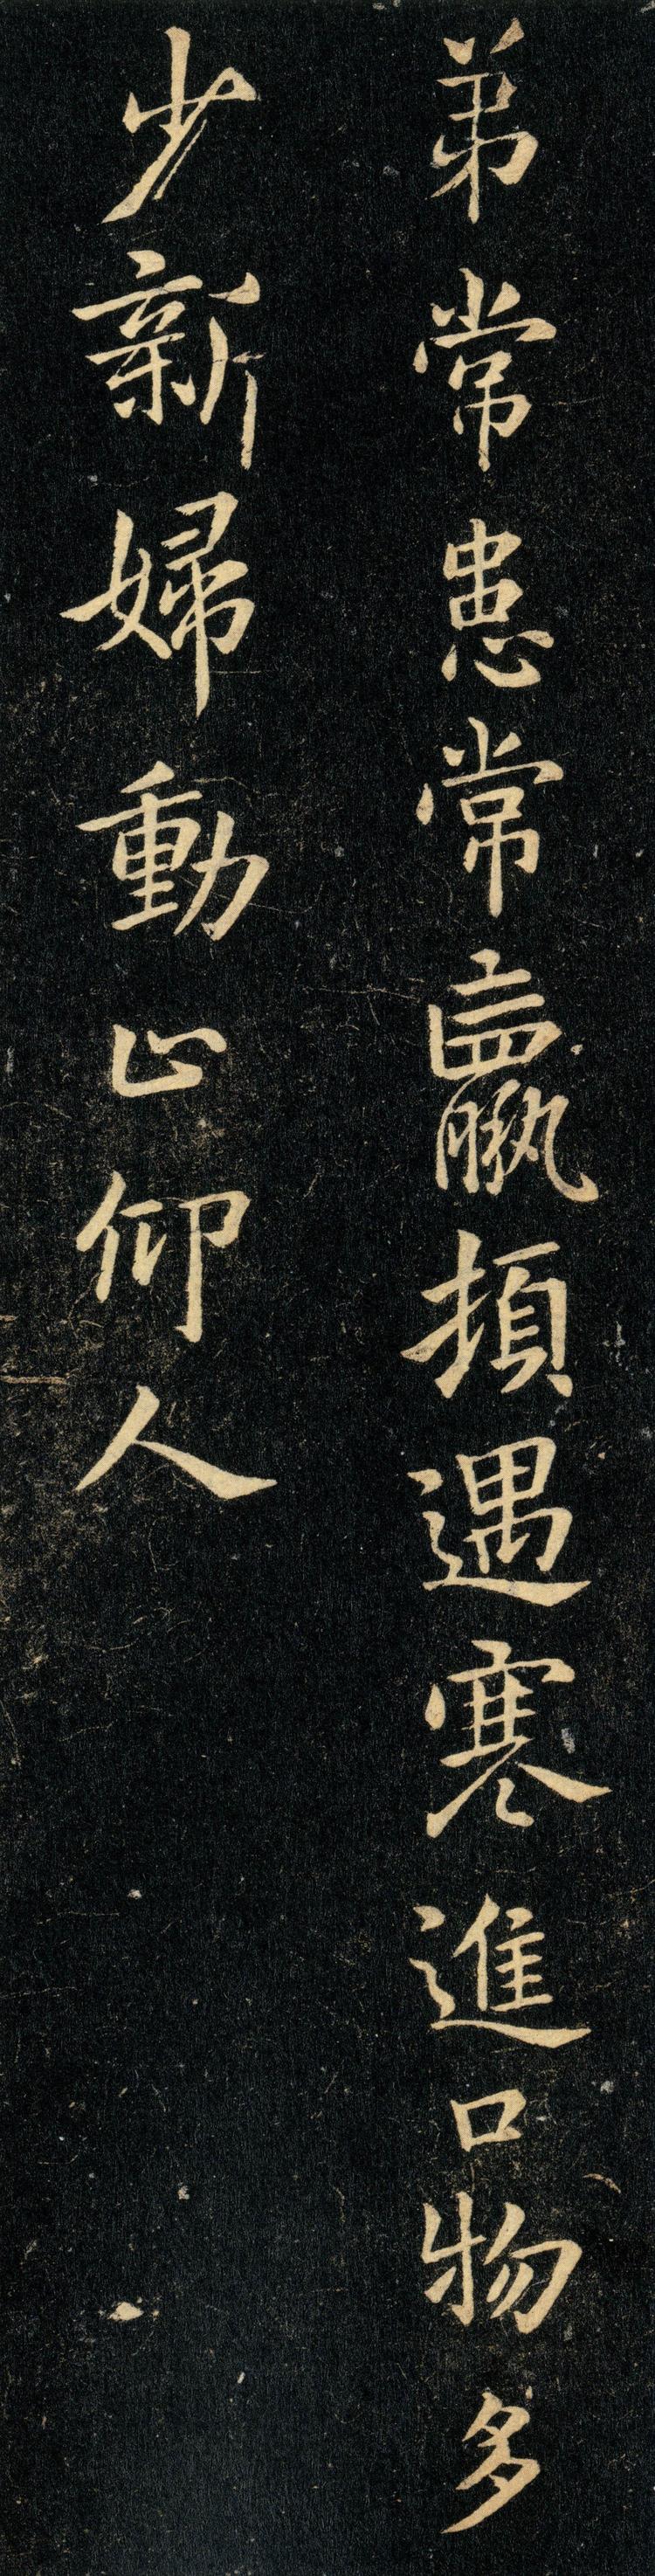 弟常患常羸頓遇寒進口物多
少新婦動止仰人